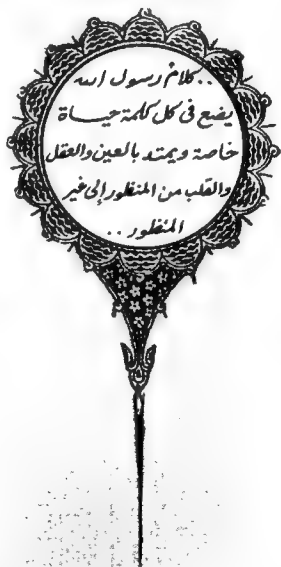 ..كلامُ رسول الله
يضع فى كل كلمة حيـاة
خاصة ويمتد بالعين والعقل
والقلب من المنظور إلى غير
المنظور ..